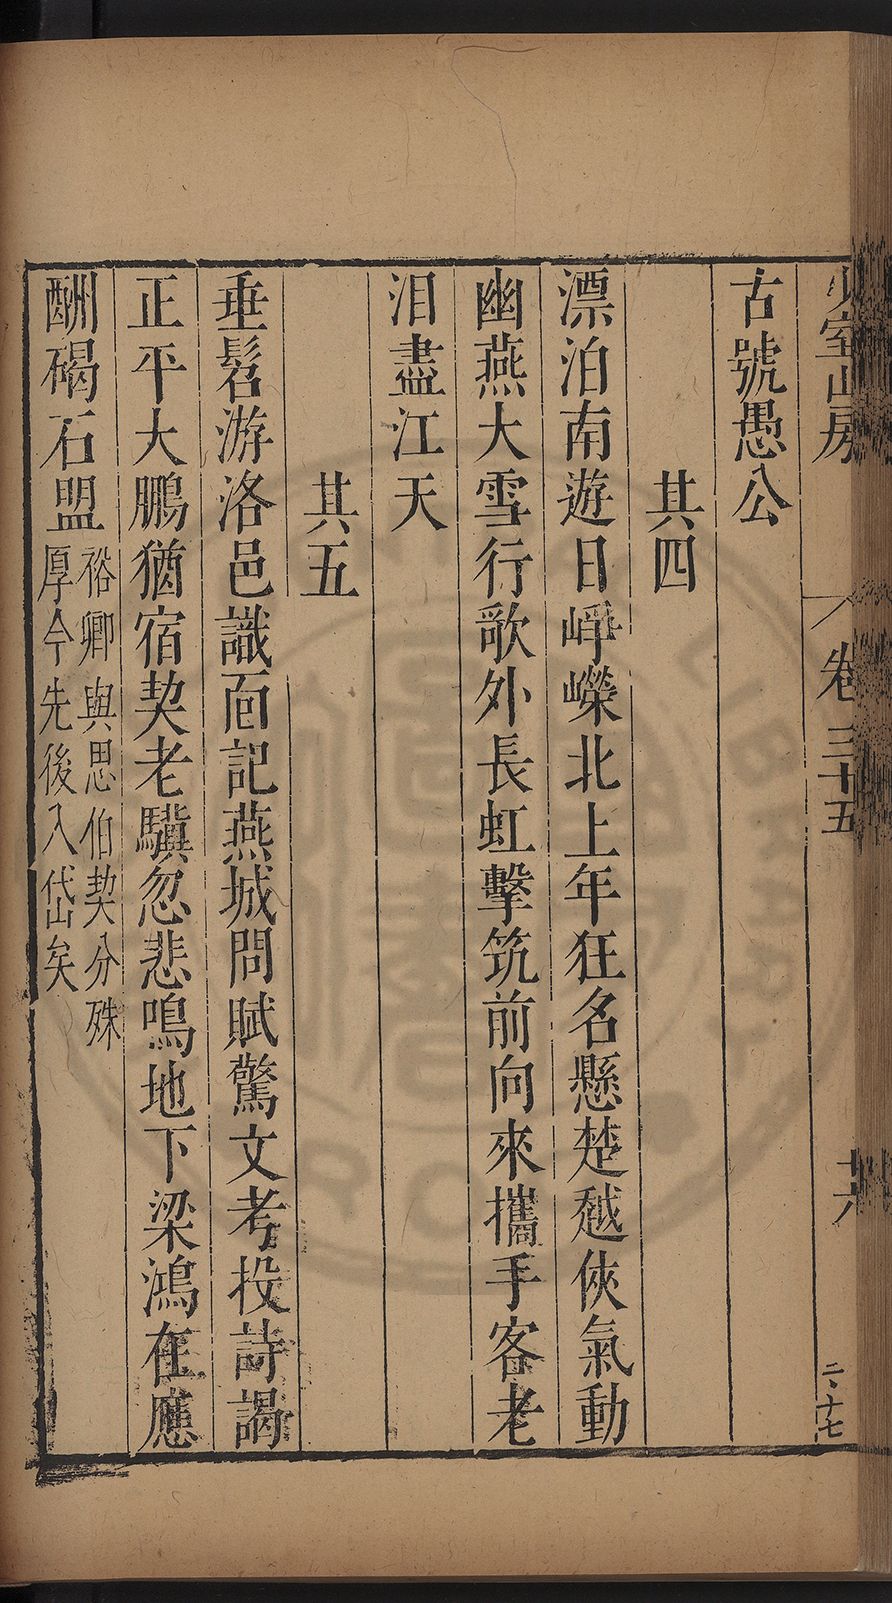 少室山房
卷三十五
二·十七
古號愚公
其四
漂泊南遊日崢嶸北上年狂名懸楚越俠氣動
幽燕大雪行歌外長虹擊筑前向來攜手客老
泪盡江天
其五
垂髫游洛邑識面記燕城問賦驚文考投詩謁
正平大鵬猶宿契老驥忽悲鳴地下梁鴻在應
酬碣石盟裕卿與思伯契分殊
厚今先後入岱矣